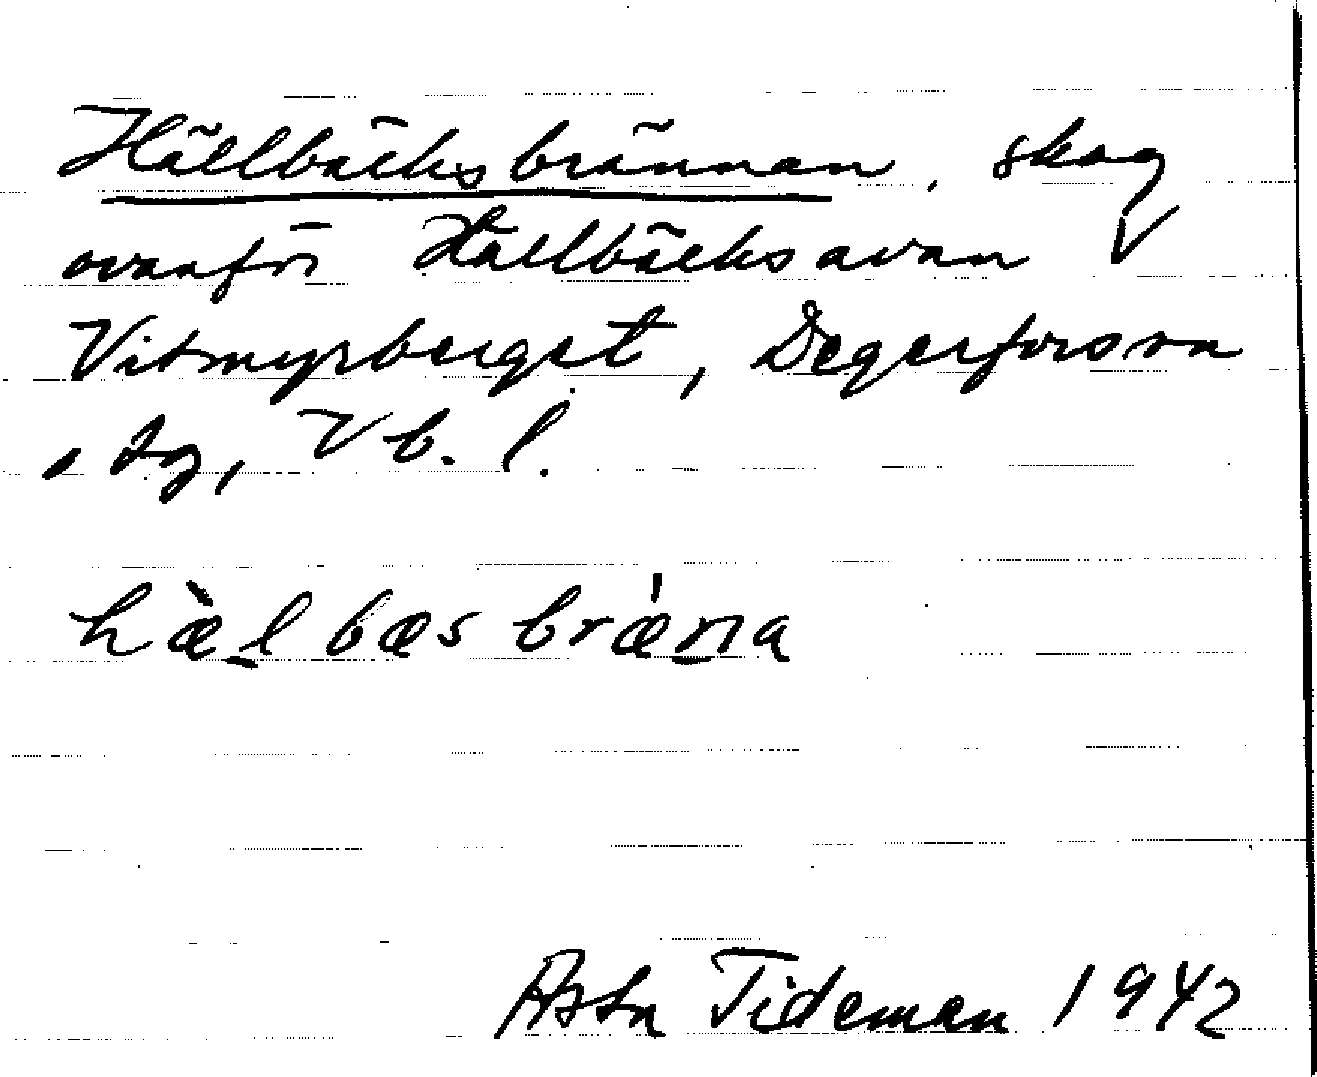 Hällbäcksbrännan, skog
ovanför Hällbäcksavan V
Vitmyrberget, Degerfors sn
Vb. l.
hæ̀l bæs bræ̍na
Asta Tideman 1942